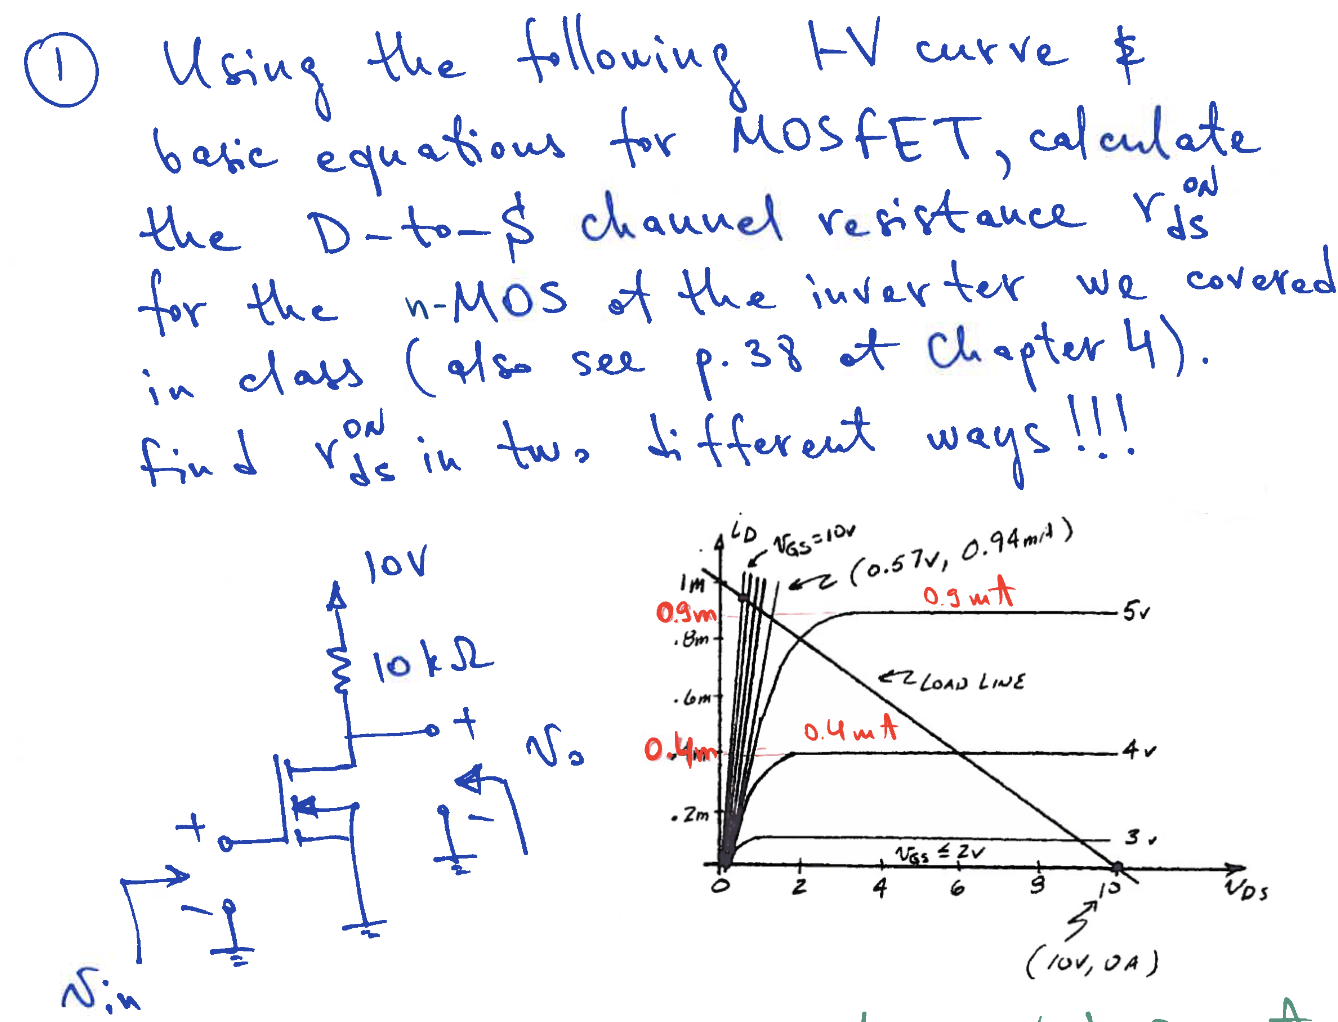 ① Using the following I-V curve &
basic equations for MOSFET, calculate
the D-to-S channel resistance r_ds^ON
for the n-MOS of the inverter we covered
in class (also see p.38 of Chapter 4).
find r_ds^ON in two different ways!!!
10V
10kΩ
+
Vo
-
+
-
Vin
iD
VGS=10V
(0.57V, 0.94mA)
1m
0.9m
0.9mA
5V
.8m
LOAD LINE
.6m
0.4mA
0.4m
4V
.2m
3V
VGS ≤ 2V
0 2 4 6 8 10
VDS
(10V, 0A)